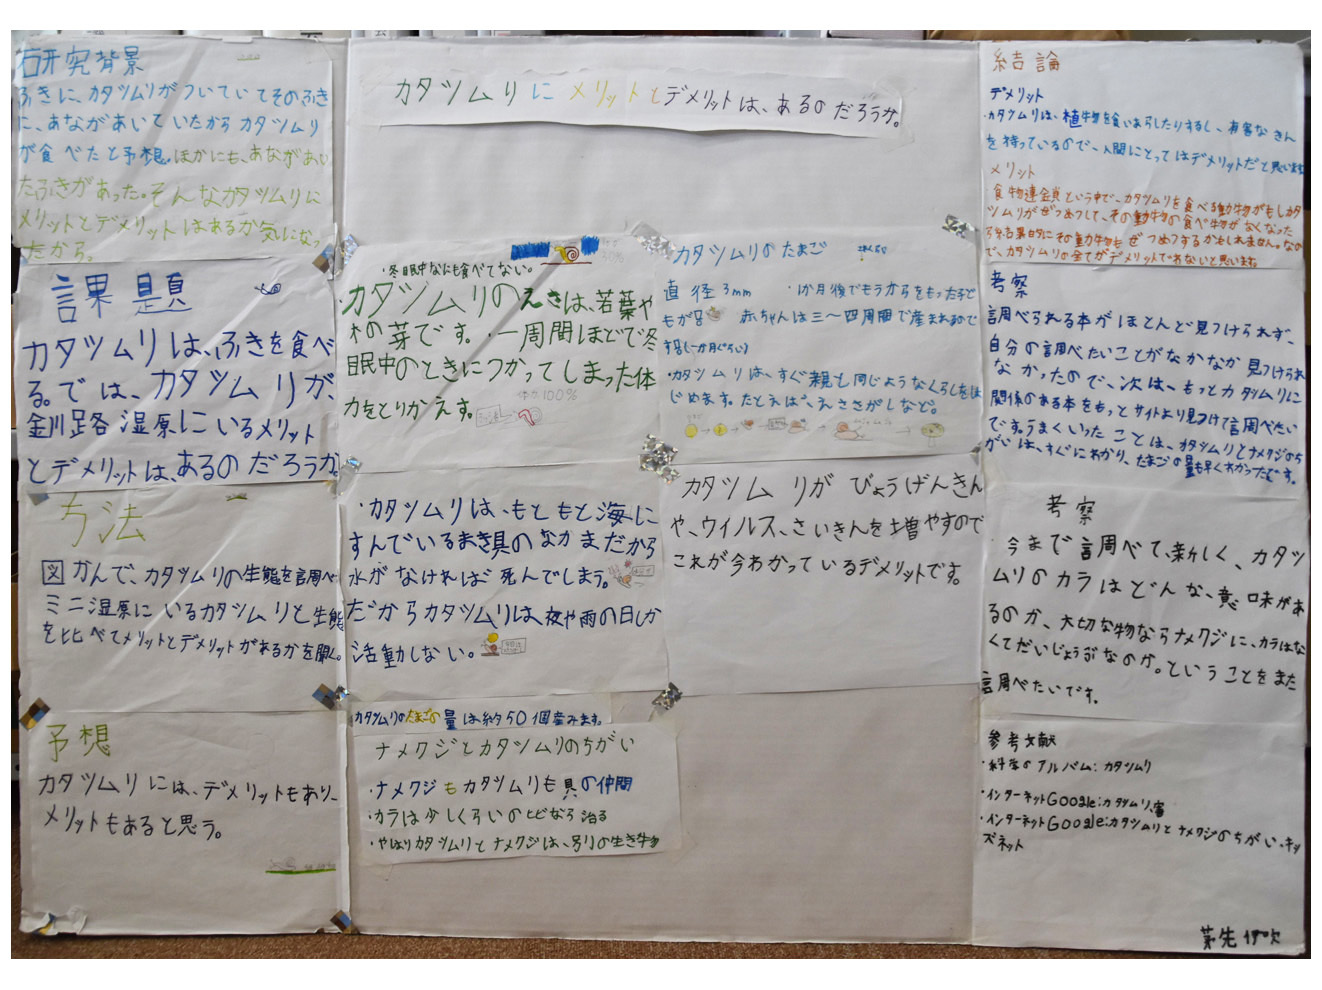 カタツムリに メリットとデメリットは、あるのだろうか。
研究背景
ふきに、カタツムリがついていてそのふき
に、あながあいていたからカタツムリ
が食べたと予想。ほかにも、あながあい
たふきがあった。そんなカタツムリに
メリットとデメリットはあるか気になっ
たから。
課題
カタツムリは、ふきを食べ
る。では、カタツムリが、
釧路湿原にいるメリット
とデメリットは、あるのだろうか。
方法
図かんで、カタツムリの生態を調べ
ミニ湿原にいるカタツムリと生態
を比べてメリットとデメリットがあるかを聞く。
予想
カタツムリには、デメリットもあり、
メリットもあると思う。
・冬眠中なにも食べてない。
・カタツムリのえさは、若葉や
木の芽です。・一周間ほどで冬
眠中のときにつかってしまった体
力をとりかえす。
体力100%
・カタツムリは、もともと海に
すんでいるまき貝のなかまだから
水がなければ死んでしまう。
だからカタツムリは、夜や雨の日しか
活動しない。
カタツムリのたまごの量は約50個産みます。
ナメクジとカタツムリのちがい
・ナメクジもカタツムリも貝の仲間
・カラは少しくらいのヒビなら治る
・やはりカタツムリとナメクジは、別の生き物
・カタツムリのたまご
直径3mm ・1か月後でもうからをもった子ど
もが 赤ちゃんは三〜四周間で産まれるので
す。(一か月ぐらい)
・カタツムリは、すぐ親と同じようなくらしをは
じめます。たとえば、えささがしなど。
カタツムリが びょうげんきん
や、ウイルス、さいきんを増やすので
これが今わかっているデメリットです。
結論
デメリット
・カタツムリは、植物を食いあらしたりするし、有害なきん
を持っているので、人間にとってはデメリットだと思います
メリット
食物連鎖という中で、カタツムリを食べる動物がもしカタ
ツムリがぜつめつして、その動物の食べ物がなくなった
ら結果的にその動物もぜつめつするかもしれません。なの
で、カタツムリの全てがデメリットでわないと思います。
考察
調べられる本がほとんど見つけられず、
自分の調べたいことがなかなか見つけられ
なかったので、次は、もっとカタツムリに
関係のある本をもっとサイトより見つけて調べたい
です。うまくいったことは、カタツムリとナメクジのち
がいは、すぐにわかり、たまごの量も早くわかったです。
考察
・今まで調べて、新しく、カタツ
ムリのカラはどんな、意味があ
るのか、大切な物ならナメクジに、カラはな
くてだいじょうぶなのか。ということをまた
調べたいです。
参考文献
・科学のアルバム:カタツムリ
・インターネットGoogle:カタツムリ、害
・インターネットGoogle:カタツムリとナメクジのちがい・キッ
ズネット